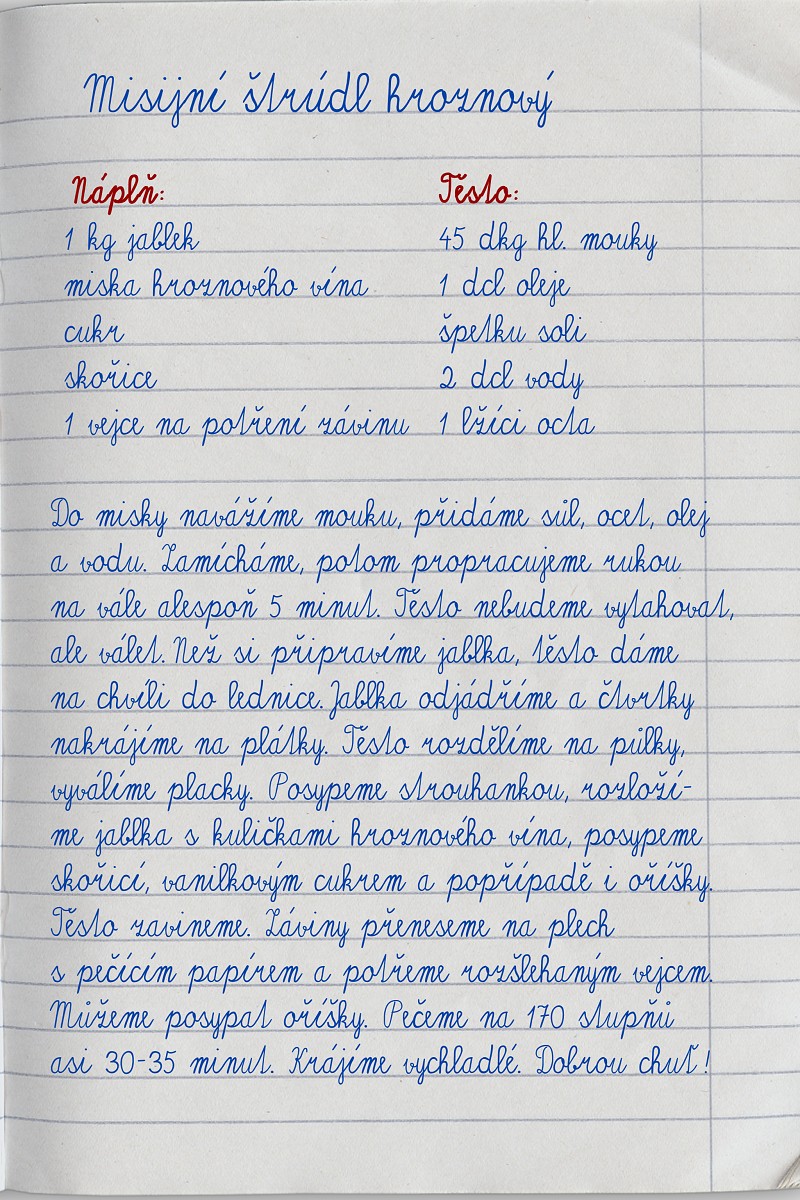 Misijní štrúdl hroznový
Náplň:
1 kg jablek
miska hroznového vína
cukr
skořice
1 vejce na potření závinu
Těsto:
45 dkg hl. mouky
1 dcl oleje
špetku soli
2 dcl vody
1 lžíci octa
Do misky navážíme mouku, přidáme sůl, ocet, olej
a vodu. Zamícháme, potom propracujeme rukou
na vále alespoň 5 minut. Těsto nebudeme vytahovat,
ale válet. Než si připravíme jablka, těsto dáme
na chvíli do lednice. Jablka odjádříme a čtvrtky
nakrájíme na plátky. Těsto rozdělíme na půlky,
vyválíme placky. Posypeme strouhankou, rozloží-
me jablka s kuličkami hroznového vína, posypeme
skořicí, vanilkovým cukrem a popřípadě i oříšky.
Těsto zavineme. Záviny přeneseme na plech
s pečícím papírem a potřeme rozšlehaným vejcem.
Můžeme posypat oříšky. Pečeme na 170 stupňů
asi 30-35 minut. Krájíme vychladlé. Dobrou chuť!